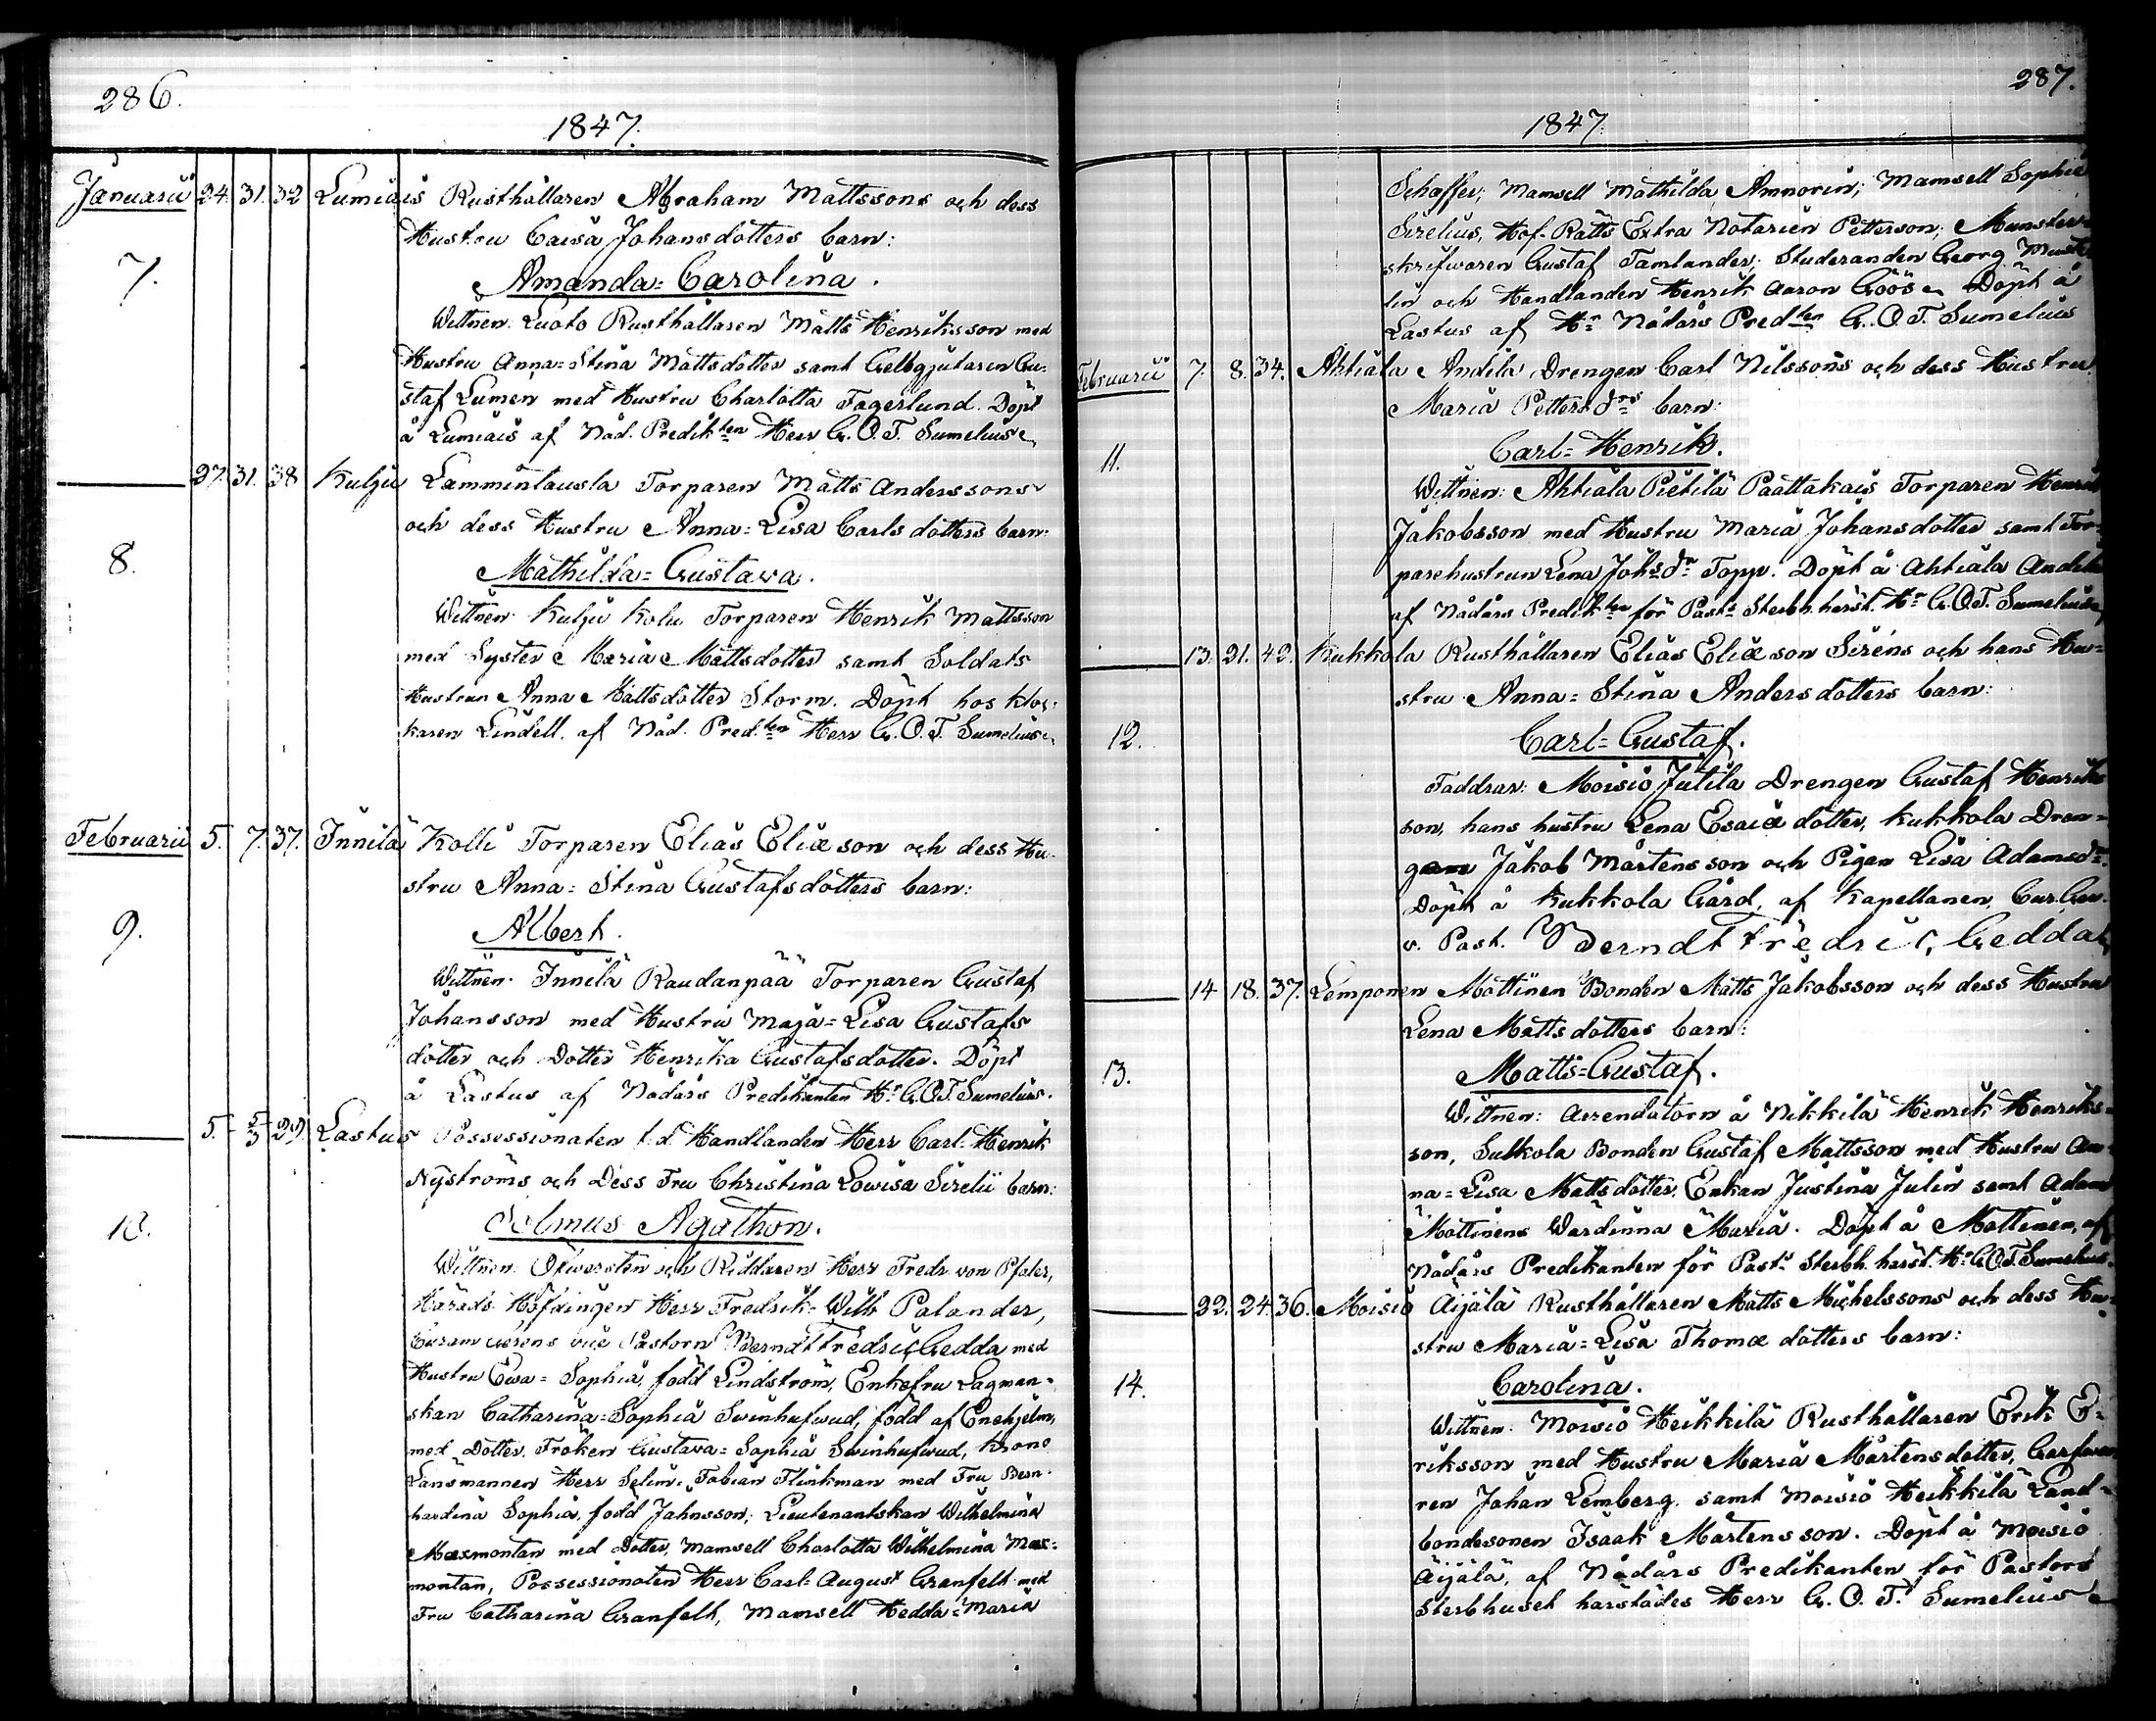 286.
1847.
Januarii 24. 31. 32 Lumiais Rusthållaren Abraham Mattssons och dess
Hustru Caisa Johansdotters barn:
7.
Amanda=Carolina.
Wittnen: Luoto Rusthållaren Matts Henriksson med
Hustru Anna=Stina Mattsdotter samt Gelbgjutaren Gu=
staf Lumen med Hustru Charlotta Fagerlund. Döpt
å Lumiais af Nåd. Predikten Herr G. O. T. Sumelius
27. 31. 38 Kulju Lammintausta Torparen Matts Anderssons
och dess Hustru Anna=Lisa Carlsdotters barn:
8.
Mathilda=Gustava.
Wittnen: Kulju Kolu Torparen Henrik Mattsson
med Syster Maria Mattsdotter samt Soldats
Hustrun Anna Mattsdotter Storm. Döpt hos kloc=
karen Lindell. af Nåd. Predten Herr G. O. T. Sumelius
Februarii 5. 7. 37. Innilä Kolli Torparen Elias Eliæson och dess Hu=
stru Anna=Stina Gustafsdotters barn:
9.
Albert.
Wittnen: Innilä Raudanpää Torparen Gustaf
Johansson med Hustru Maja=Lisa Gustafs
dotter och Dotter Henrika Gustafsdotter. Döpt
å Lastus af Nådårs Predikanten Hr G. O. T. Sumelius.
5. 5/3 29. Lastus Possessionaten f.d. Handlanden Herr Carl Henrik
Nyströms och Dess Fru Christina Lowisa Sirelii barn:
10.
Selmus Agathon.
Wittnen: Öfwersten och Riddaren Herr Fredr. von Pfaler,
Härads Höfdingen Herr Fredrik=Wilh Palander,
vice Pastorn Berndt Fredric Gedda med
Hustru Ewa=Sophia, född Lindström, Enkefru Lagman=
skan Catharina=Sophia Swinhufwud, född af Enehjelm,
med Dotter Fröken Gustava=Sophia Swinhufwud, Krono
Länsmannen Herr Selim=Fabian Flinkman med Fru Bern=
hardina Sophia, född Jahnsson, Lieutenantskan Wilhelmina
Maxmontan med Dotter, Mamsell Charlotta Wilhelmina Max=
montan, Possessionaten Herr Carl=August Granfelt med
Fru Catharina Granfelt, Mamsell Hedda=Maria
287.
1847.
Schaffer, Mamsell Mathilda Amnorin, Mamsell Sophie
Sirelius, Hof=Rätts Extra Notarien Petterson, Munster=
skrifwaren Gustaf Tamlander, Studeranden Georg Muste
lin och Handlanden Henrik Aaron Göös. Döpt å
Lastus af Hr Nådårs Predten G. O. T. Sumelius
Februarii 7. 8. 34. Ahtiala Andila Drengen Carl Nilssons och dess Hustru
Maria Petters drs barn:
11.
Carl=Henrik.
Wittnen: Ahtiala Pietilä Paattakais Torparen Henrik
Jakobsson med Hustru Maria Johansdotter samt Tor=
parehustrun Lena Johsdr Topp. Döpt å Ahtiala Andila
af Nådårs Predikten för Pasts Sterbh. härst. Hr G. O. T. Sumelius
13. 21. 42. Kukkola Rusthållaren Elias Eliæson Siréns och hans Hu=
stru Anna=Stina Andersdotters barn:
12.
Carl=Gustaf.
Faddrar: Moisio Jutila Drengen Gustaf Henriks
son, hans hustru Lena Esaiæ dotter, Kukkola Dren=
garne Jakob Mårtensson och Pigan Lisa Adamsdr.
Döpt å Kukkola Gård, af Kapellanen, Cur. Ger.
v. Past. Berndt Fredric Gedda
14 18. 37. Lemponen Mattinen Bonden Matts Jakobsson och dess Hustru
Lena Mattsdotters barn:
13.
Matts=Gustaf.
Wittnen: Arrendatorn å Nikkilä Henrik Henriks=
son, Sulkola Bonden Gustaf Mattsson med Hustru An=
na=Lisa Mattsdotter, Enkan Justina Julin samt Adam
Mattinens Wärdinna Maria. Döpt å Mattinen, af
Nådårs Predikanten för Pasts Sterbh. härst. Hr G. O. T. Sumelius
22. 24. 36. Moisio Äijälä Rusthållaren Matts Michelssons och dess Hu=
stru Maria=Lisa Thomæ dotters barn:
14.
Carolina.
Wittnen: Moisio Heikkilä Rusthållaren Erik E=
riksson med Hustru Maria Mårtensdotter, Garfwa
ren Johan Lemberg. samt Moisio Heikkilä Land=
bondesonen Isaak Mårtensson. Döpt å Moisio
Äijälä, af Nådårs Predikanten för Pastors
Sterbhuset härstädes Herr G. O. T. Sumelius